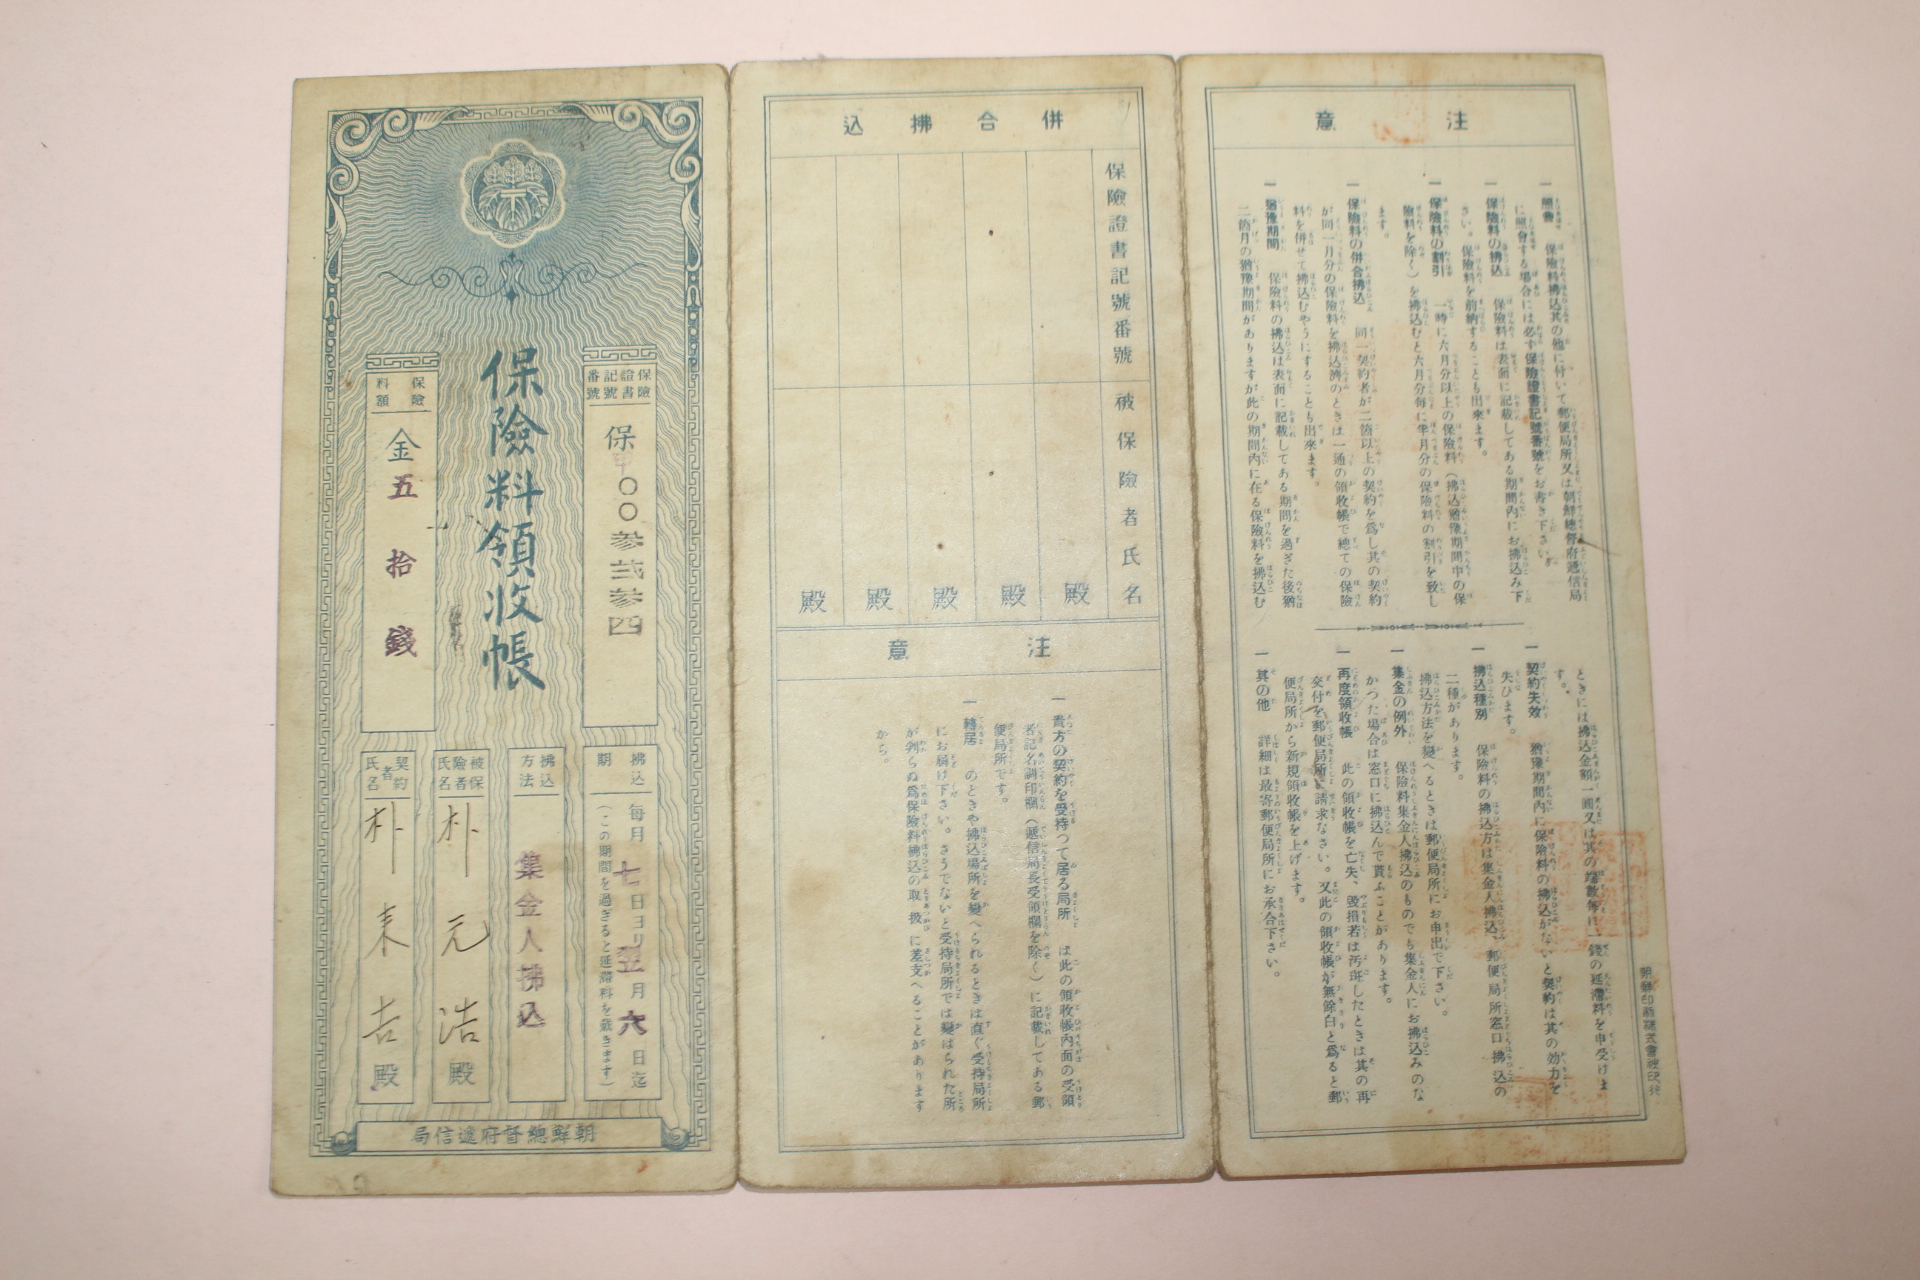 保險料領收帳
保險證書記號番號
保
〇〇参弐参四
保險料額
金五拾錢
拂込期
每月七日ヨリ翌月六日迄
(この期間を過ぎると延滯料を戴きます)
拂込方法
集金人拂込
被保險者氏名
朴元浩殿
契約者氏名
朴来吉殿
朝鮮總督府遞信局
併合拂込
保險證書記號番號
被保險者氏名
殿
殿
殿
殿
殿
注意
一 貴方の契約を受持つて居る局所 は此の領收帳內面の受領
者記名調印欄(遞信局長受領欄を除く)に記載してある郵
便局所です。
一 轉居 のときや拂込場所を變へられるときは直ぐ受持局所
にお屆け下さい。さうでないと受持局所では變はられた所
が判らぬ爲保險料拂込の取扱に差支へることがあります
から。
注意
一 照會 保險料拂込其の他に付いて郵便局所又は朝鮮總督府遞信局
に照會する場合には必ず保險證書記號番號をお書き下さい。
一 保險料の拂込 保險料は表面に記載してある期間內にお拂込み下
さい。保險料を前納することも出來ます。
一 保險料の割引 一時に六月分以上の保險料(拂込猶豫期間中の保
險料を除く)を拂込むと六月分每に半月分の保險料の割引を致し
ます。
一 保險料の併合拂込 同一契約者が二箇以上の契約を爲し其の契約
が同一月分の保險料を拂込濟のときは一通の領收帳で總ての保險
料を併せて拂込むやうにすることも出來ます。
一 猶豫期間 保險料の拂込は表面に記載してある期間を過ぎた後猶
二箇月の猶豫期間がありますが此の期間內に在る保險料を拂込む
ときには拂込金額一圓又は其の端數每に一錢の延滯料を申受けま
す。
一 契約失效 猶豫期間內に保險料の拂込がないと契約は其の効力を
失ひます。
一 拂込種別 保險料の拂込方は集金人拂込、郵便局所窓口拂込の
二種があります。
拂込方法を變へるときは郵便局所にお申出で下さい。
一 集金の例外 保險料集金人拂込のものでも集金人にお拂込みのな
かつた場合は窓口に拂込んで貰ふことがあります。
一 再度領收帳 此の領收帳を亡失、毀損若は汚斑したときは其の再
交付を郵便局所に請求なさい。又此の領收帳が無餘白と爲ると郵
便局所から新規領收帳を上げます。
一 其の他 詳細は最寄郵便局所にお承合下さい。
朝鮮印刷株式會社印行